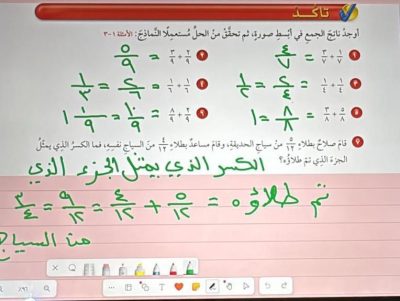 تأكّد
أوجد ناتج الجمع في أبسط صورة، ثم تحقّق من الحل مستعملًا النماذج: الأمثلة ١-٣
١ ١/٧ + ٣/٧ = ٤/٧ ٢ ٢/٩ + ٣/٩ = ٥/٩
١/٤ + ١/٤ = ٢/٤ = ١/٢ ١/٦ + ١/٦ = ٢/٦ = ١/٣
٥ ٥/٨ + ٣/٨ = ٨/٨ = ١ ٦ ٢/٩ + ٨/٩ = ١٠/٩ = ١ ١/٩
٧ قام صلاح بطلاء ٥/١٢ من سياج الحديقة، وقام مساعد بطلاء ٤/١٢ من السياج نفسه، فما الكسر الذي يمثل
الجزء الذي تم طلاؤه؟
الكسر الذي يمثل الجزء الذي
تم طلاؤه = ٥/١٢ + ٤/١٢ = ٩/١٢ = ٣/٤
من السياج